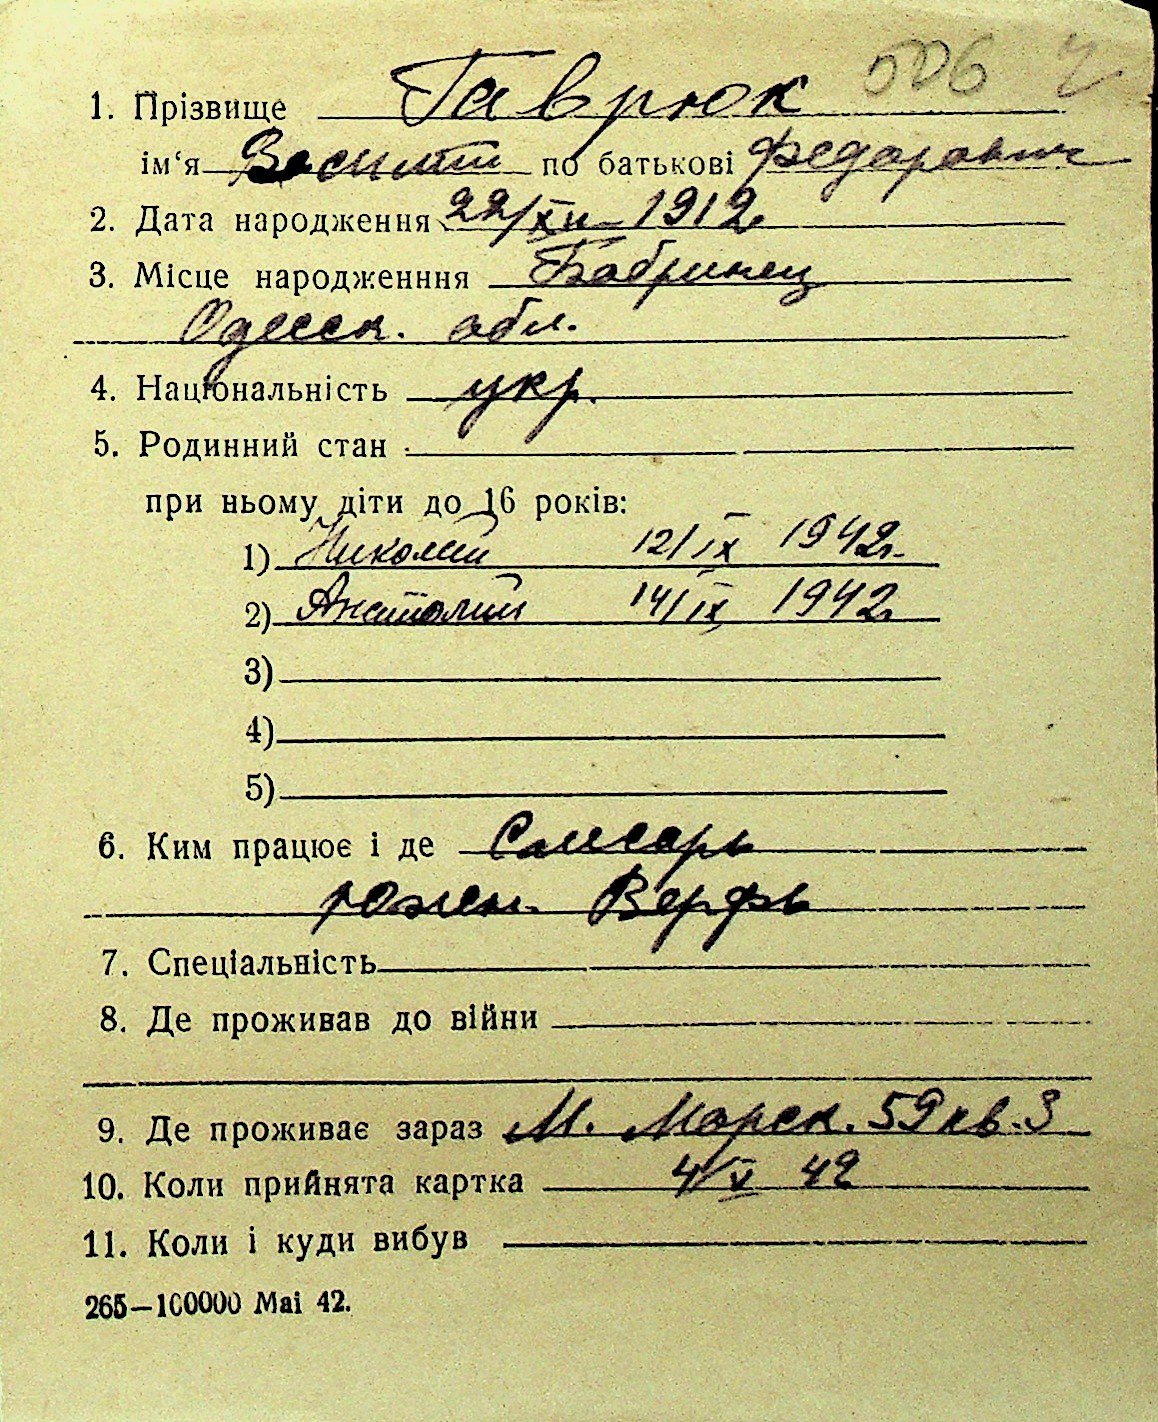 506
1. Прізвище Гаврюк
ім‘я Василий по батькові Федорович
2. Дата народження 22/XII – 1912.
3. Місце народженння Бобринец
Одесск. обл.
4. Національність укр.
5. Родинний стан
при ньому діти до 16 років:
1) Николай 12/IX 1942г.
2) Анатолий 14/IX 1942г.
3)
4)
5)
6. Ким працює і де Слесарь
Южн. Верфь
7. Спеціальність
8. Де проживав до війни
9. Де проживає зараз М. Морск. 59 кв. 3
10. Коли прийнята картка 4/V 42
11. Коли і куди вибув
265—100000 Mai 42.